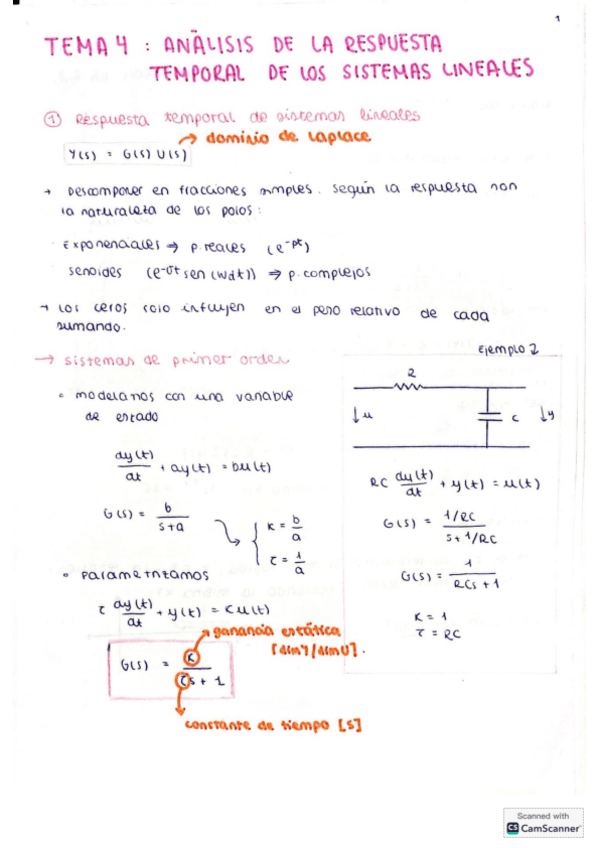 1
TEMA 4 : ANÁLISIS DE LA RESPUESTA
TEMPORAL DE LOS SISTEMAS LINEALES
① Respuesta temporal de sistemas lineales
→ dominio de Laplace
Y(s) = G(s) U(s)
→ Descomponer en fracciones simples. Según la respuesta son
la naturaleza de los polos:
Exponenciales ⇒ p. reales (e^-pt)
senoides (e^-σt sen (wdt)) ⇒ p. complejos
→ Los ceros solo influyen en el peso relativo de cada
sumando.
→ sistemas de primer orden
• modelamos con una variable
de estado
dy(t)/dt + ay(t) = bu(t)
G(s) = b/(s+a)
K = b/a
τ = 1/a
• Parametrizamos
τ dy(t)/dt + y(t) = Ku(t)
ganancia estática
[dim Y/dim U].
G(s) = K/(τs + 1)
constante de tiempo [s]
Ejemplo 2
R
u
C
y
RC dy(t)/dt + y(t) = u(t)
G(s) = (1/RC)/(s + 1/RC)
G(s) = 1/(RCs + 1)
K = 1
τ = RC
Scanned with
CS CamScanner